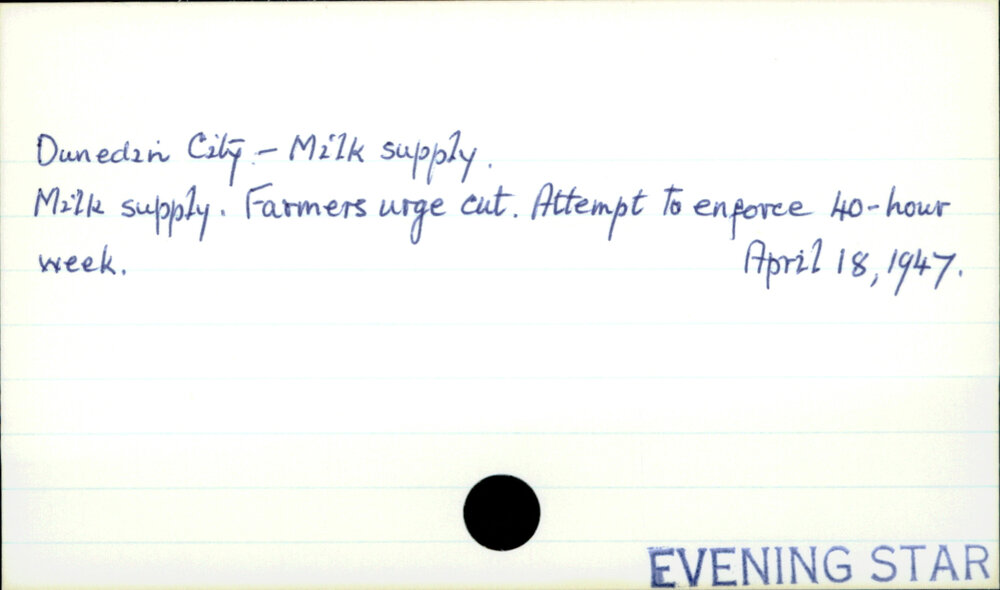 Dunedin City – Milk supply.
Milk supply. Farmers urge cut. Attempt to enforce 40-hour
week. April 18, 1947.
EVENING STAR